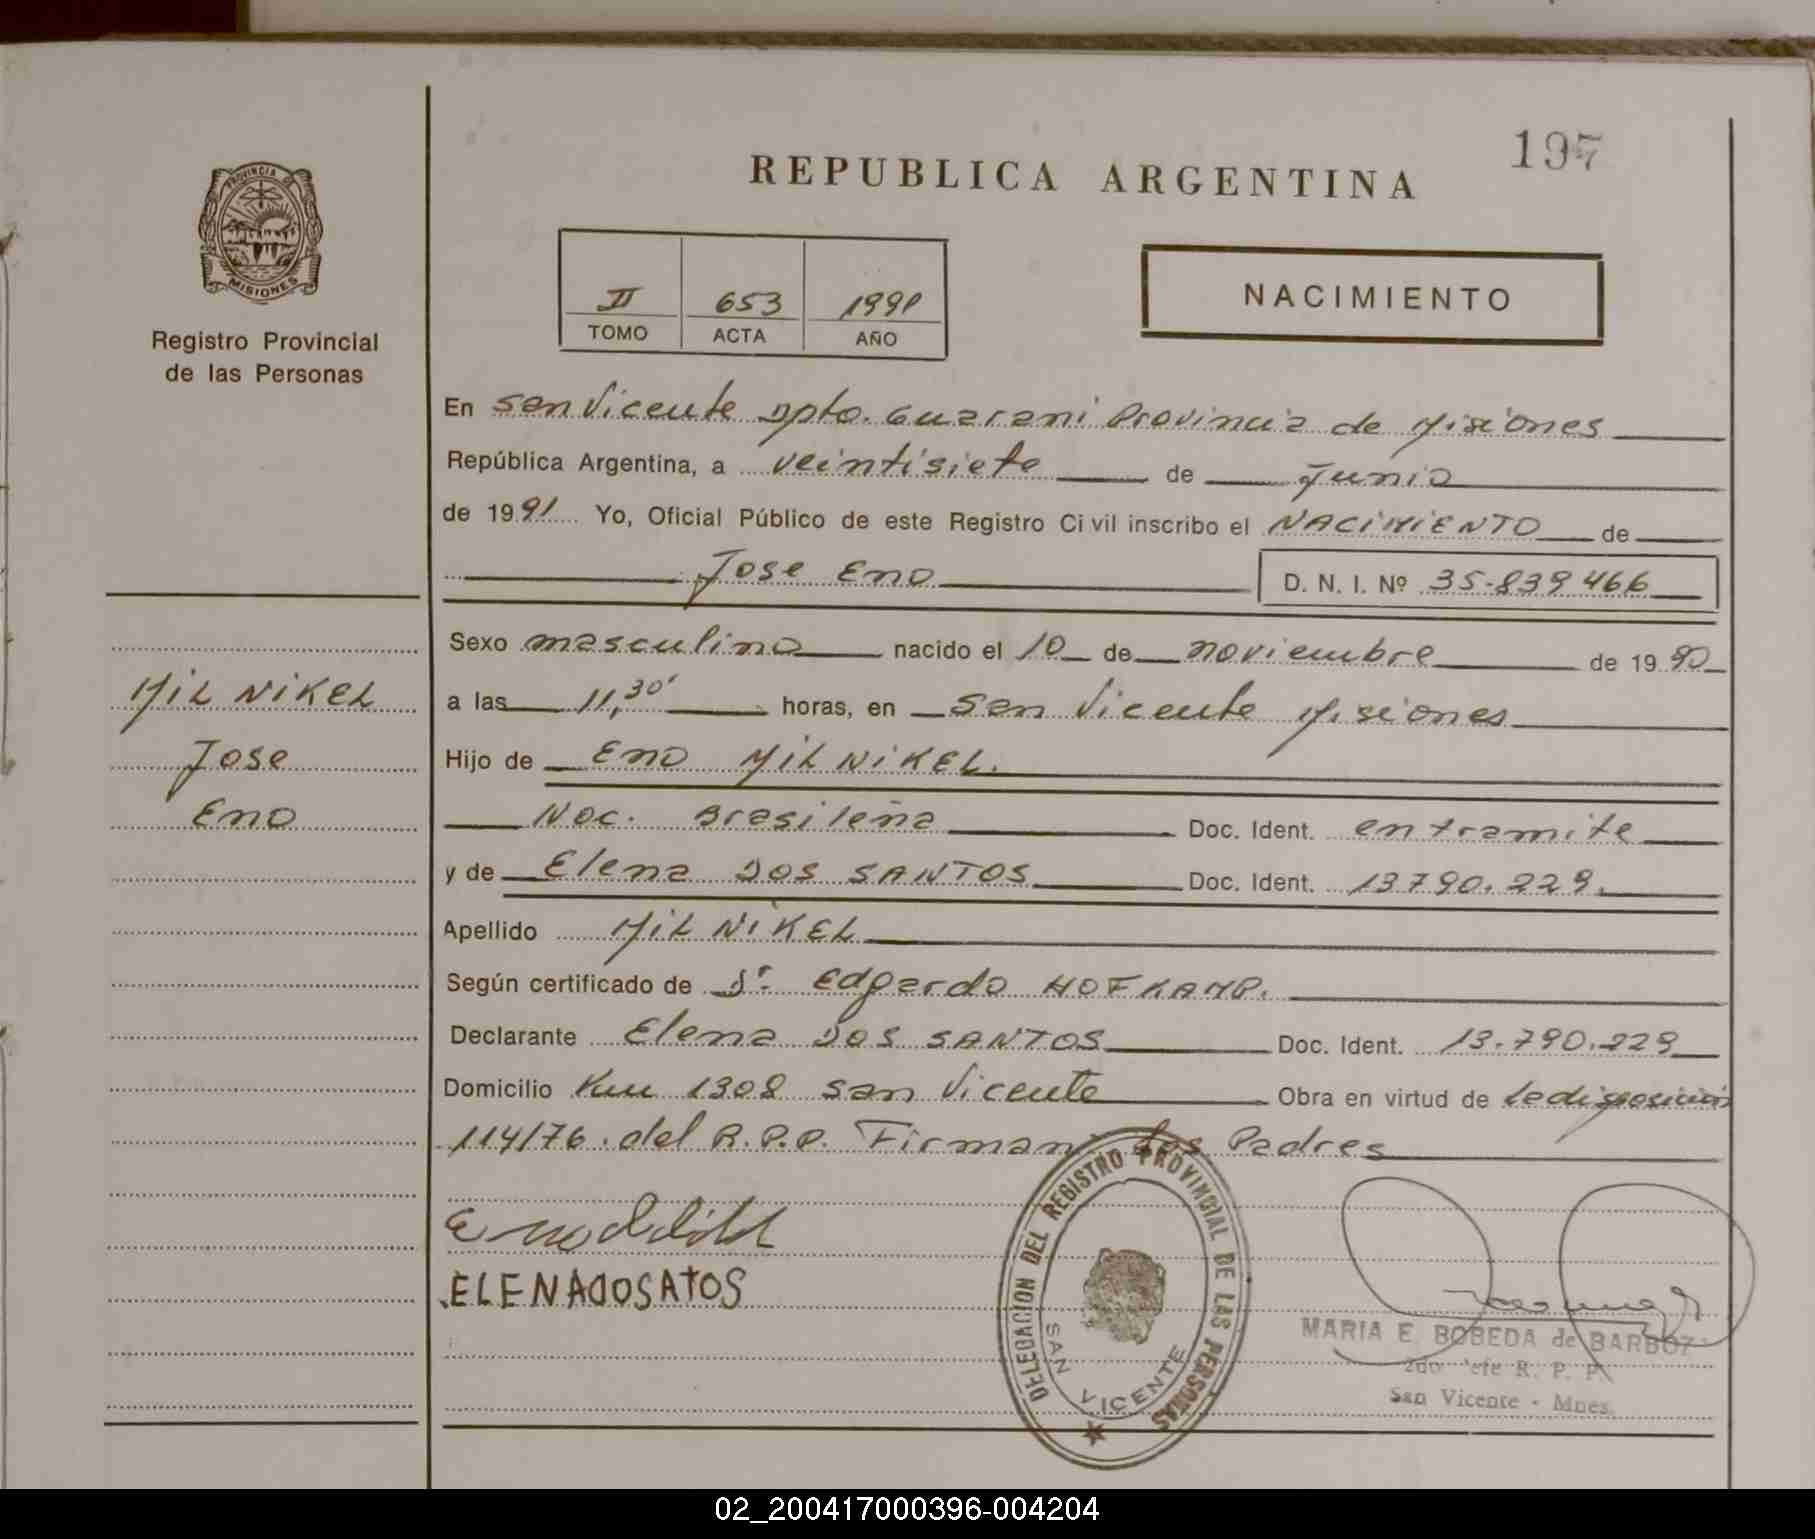 197
REPUBLICA ARGENTINA
PROVINCIA DE
MISIONES
Registro Provincial
de las Personas
II 653 1991
TOMO ACTA AÑO
NACIMIENTO
En San Vicente Dpto. Guarani Provincia de Misiones
República Argentina, a veintisiete de Junio
de 1991 Yo, Oficial Público de este Registro Civil inscribo el NACIMIENTO de
Jose Eno D. N. I. Nº 35-839466
Sexo masculino nacido el 10 de noviembre de 1990
MIL NIKEL
a las 11,30' horas, en San Vicente Misiones
Jose
Hijo de Eno MIL NIKEL.
Eno
Nac. Brasileña Doc. Ident. en tramite
y de Elena DOS SANTOS Doc. Ident. 13790.229.
Apellido MIL NIKEL
Según certificado de Dr. Edgardo HOFKAMP.
Declarante Elena DOS SANTOS Doc. Ident. 13.790.229
Domicilio Km 1308 San Vicente Obra en virtud de la disposición
114/76. del R.P.P. Firman los Padres
ELENADOSATOS
DELEGACION DEL REGISTRO PROVINCIAL DE LAS PERSONAS
SAN VICENTE
MARIA E. BOBEDA de BARBOZ
2do. Jefe R. P. P.
San Vicente - Mnes.
02_200417000396-004204